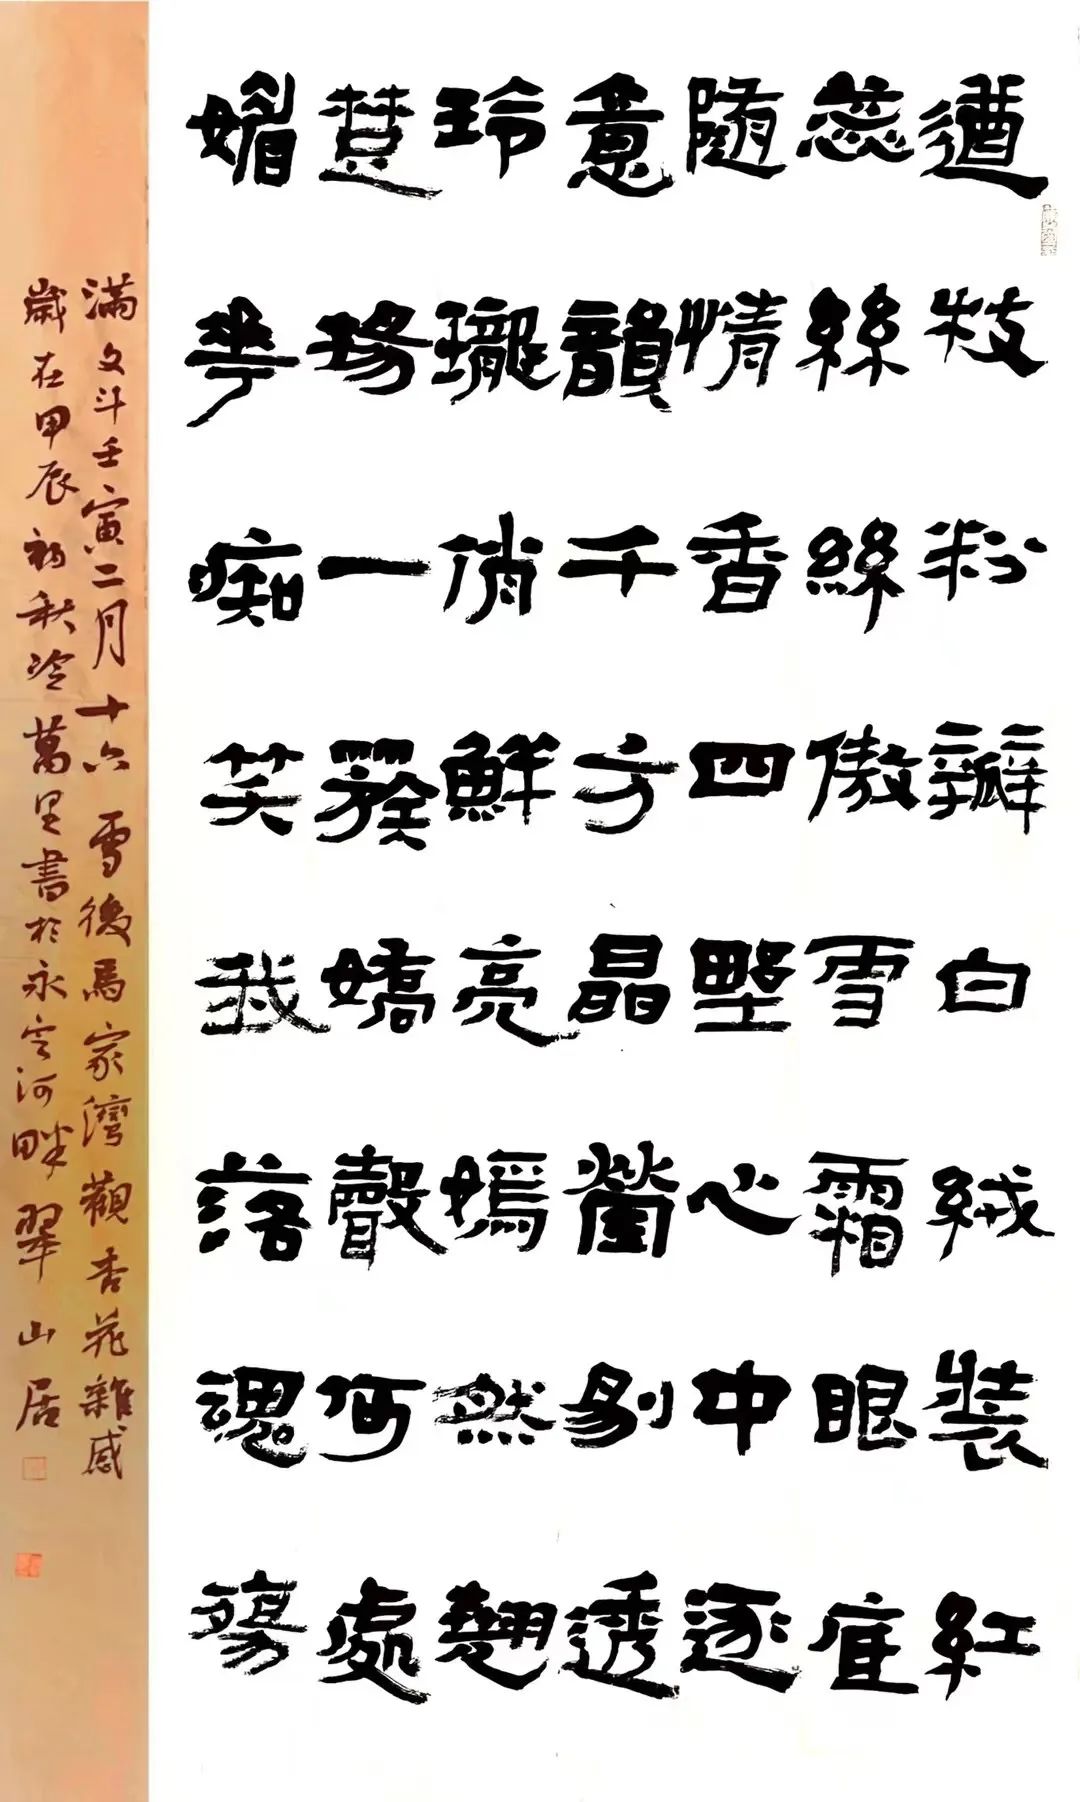 遒枝粉瓣白絨裝紅
蕊絲絲傲雪霜眼底
隨情香四野心中逐
意韻千方晶瑩剔透
玲瓏俏鮮亮嫣然翹
一嬌聲何處
媚華痴笑我落魂殤
滿文斗壬寅二月十六雪後馬家灣觀杏花雜感
歲在甲辰初秋冷萬里書於永定河畔翠山居